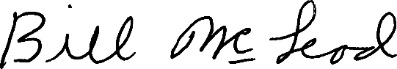 Bill McLeod